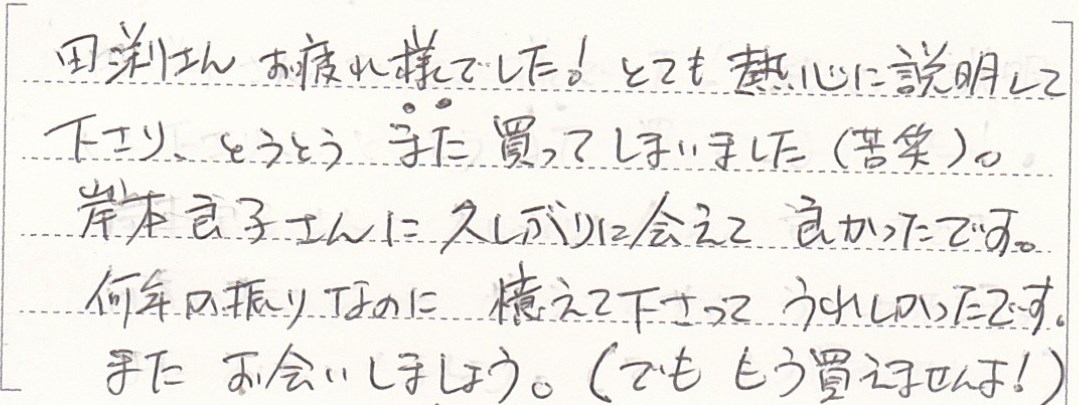 田渕さん お疲れ様でした! とても熱心に説明して
下さり、とうとう また 買ってしまいました(苦笑)。
岸本良子さんに 久しぶりに会えて 良かったです。
何年か振りなのに 憶えて下さって うれしかったです。
また お会いしましょう。(でも もう買えませんよ!)